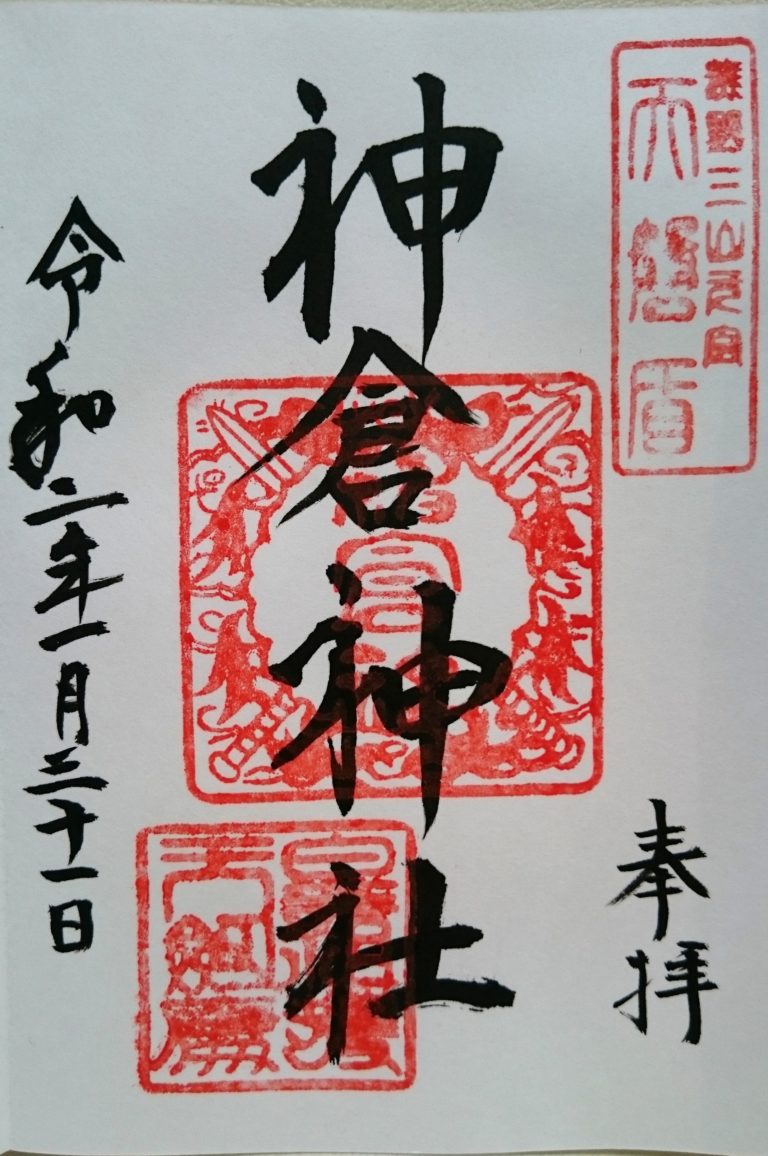 熊野三山元宮
天磐盾
奉拝
神倉神社
令和二年一月三十一日